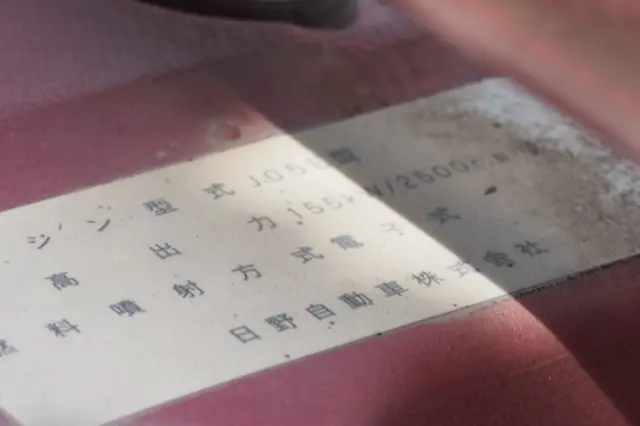 ジン型式 J05E
高出力 155kW/2500r.p.m
燃料噴射方式電子式
日野自動車株式会社